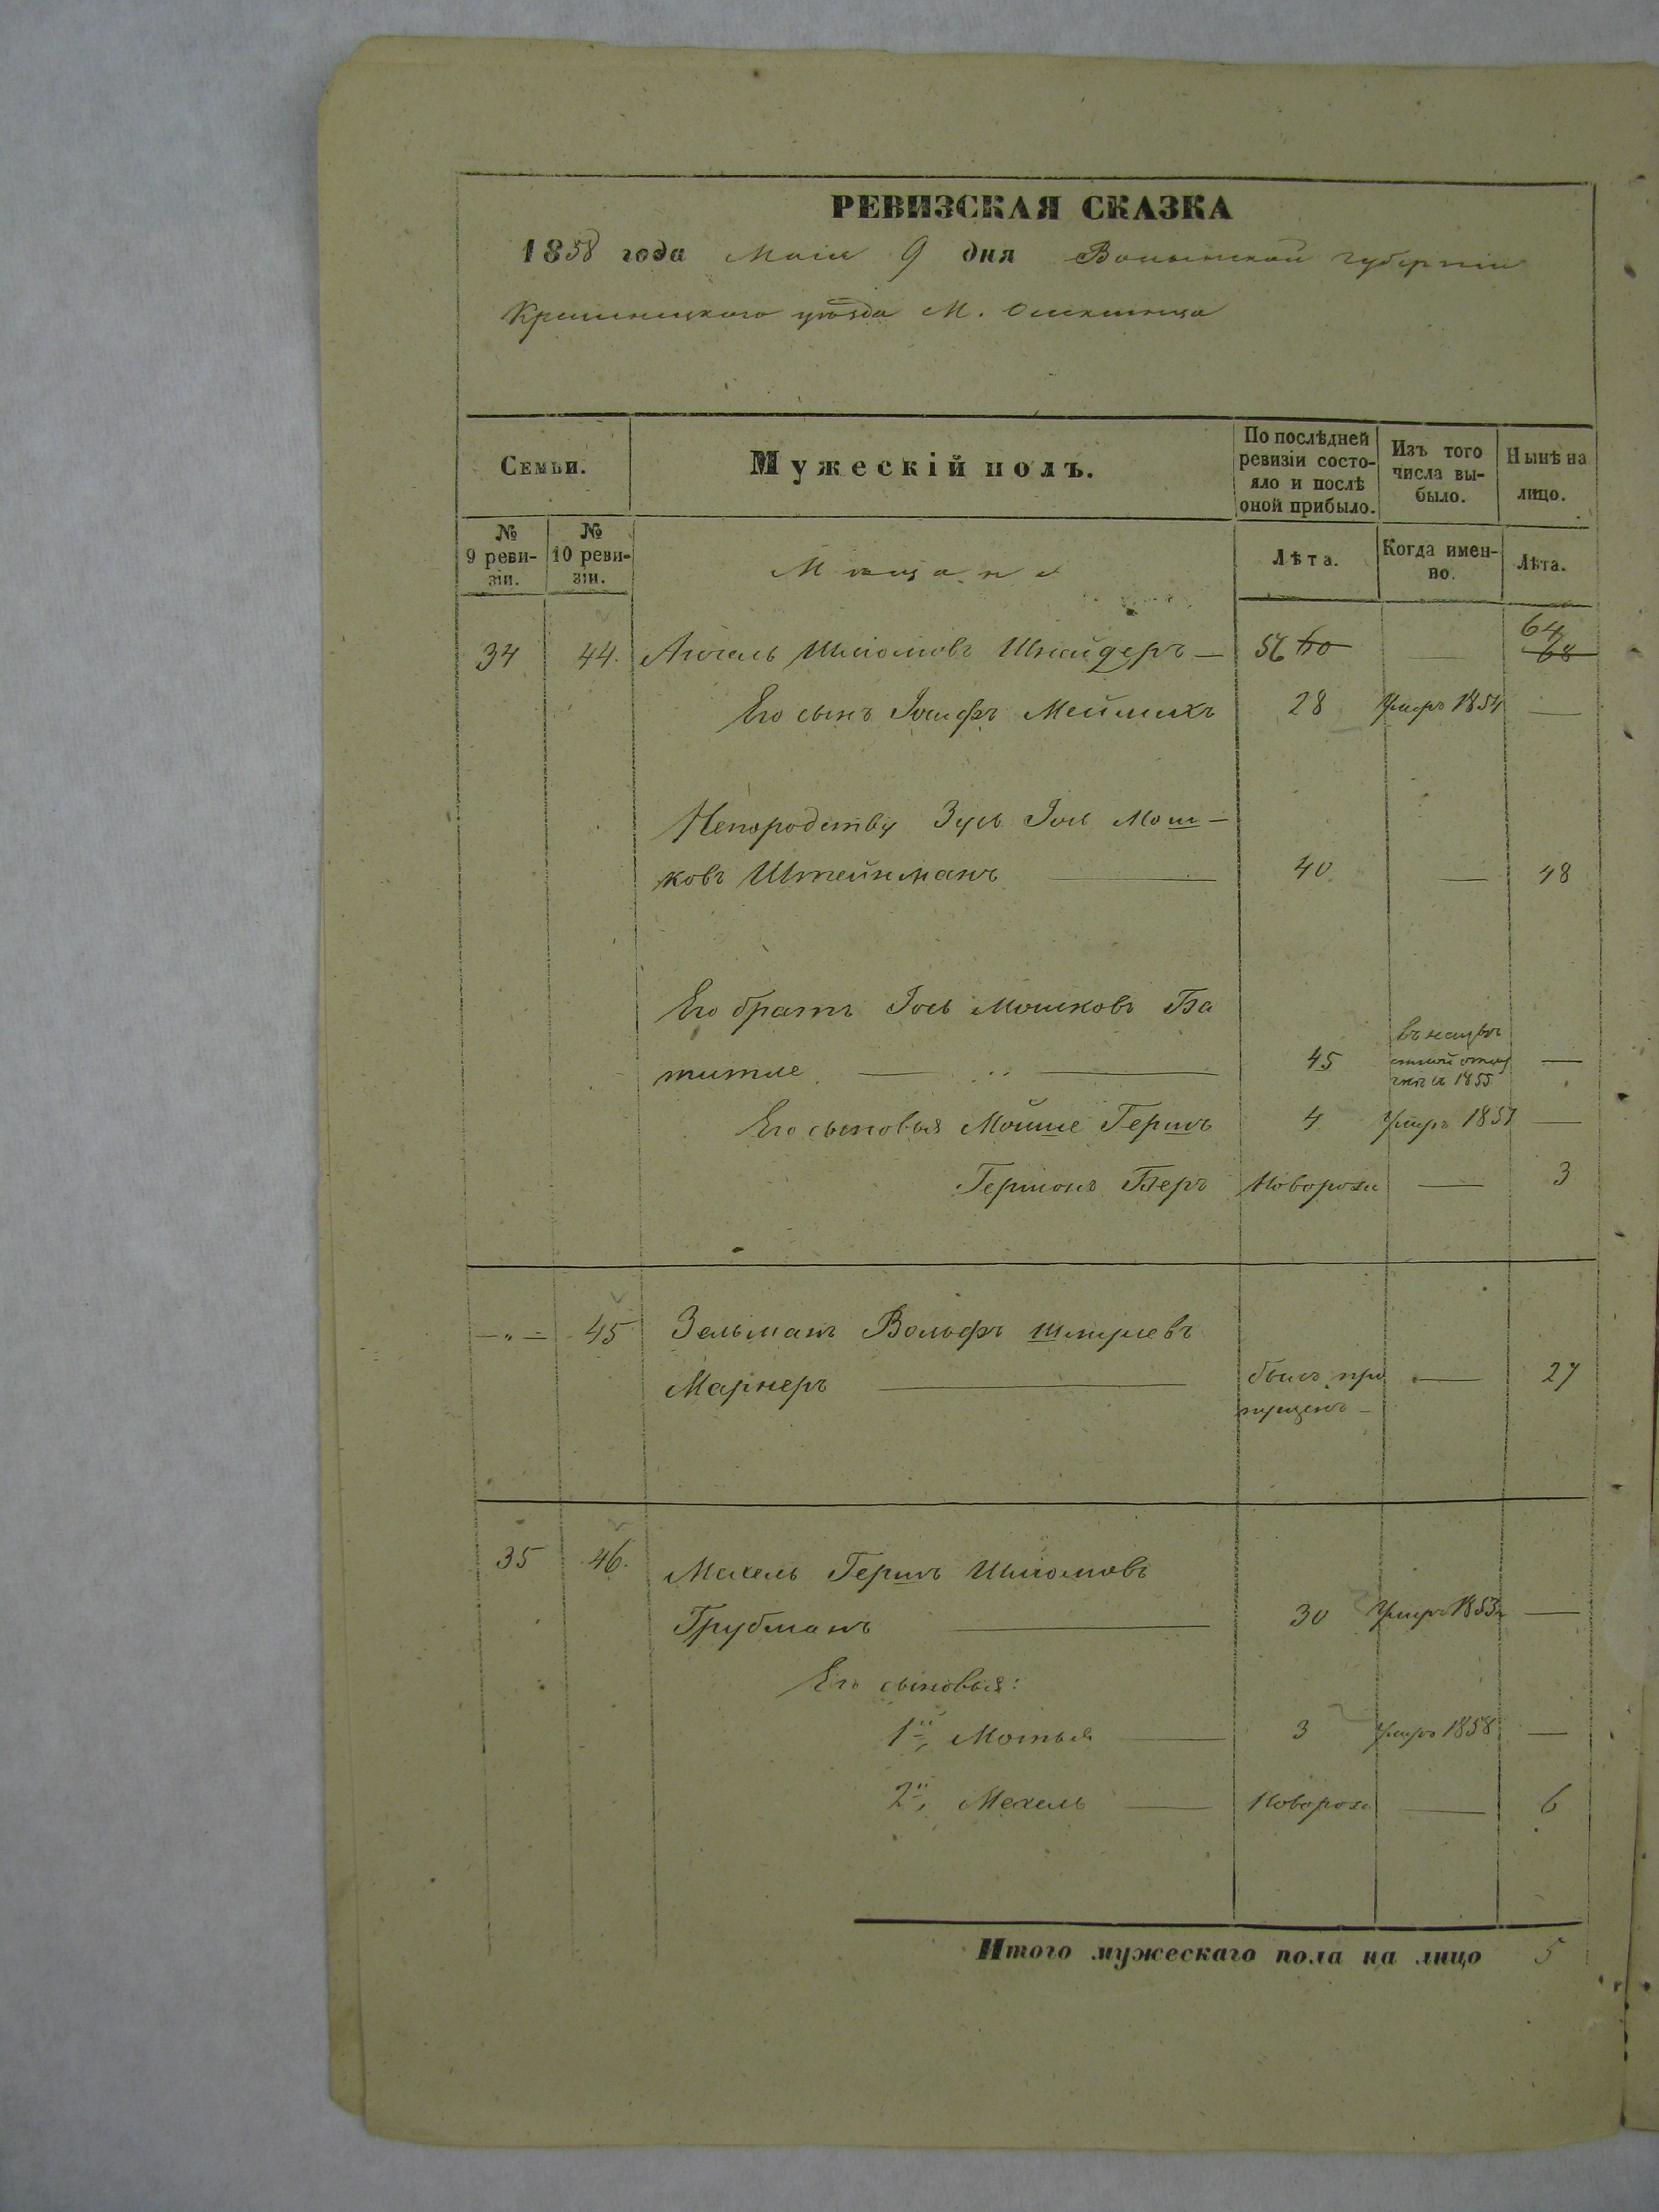 РЕВИЗСКАЯ СКАЗКА
1858 года Маія 9 дня Волынской губерніи
Кременецкаго уѣзда М.
Семьи.
Мужескій полъ.
По послѣдней ревизіи состояло и послѣ оной прибыло.
Изъ того числа выбыло.
Нынѣ на лицо.
№ 9 ревизіи.
№ 10 ревизіи.
Мѣщане
Лѣта.
Когда именно.
Лѣта.
34 44. Шліомовъ Шнайдеръ — 56 60 — 64 68
Его сынъ Іосифъ Мейлихъ 28 Умеръ 1854 —
Непородству Зусь Іось Мош-
ковъ Штейнманъ — 40 — 48
Его братъ Іось Мошковъ Ба
титле — 45 1855 —
Его сыновья Мойше Гершъ 4 Умеръ 1857 —
Гершонъ Беръ Новорож — 3
— „ — 45 Зельманъ Вольфъ Шмулевъ
Марнеръ — былъ про — 27
пущенъ —
35 46. Мехель Гершъ Шліомовъ
Грубманъ — 30 Умеръ 1853 —
Его сыновья:
1й, Мотья — 3 Умеръ 1858 —
2й, Мехель — Новорож — 6
Итого мужескаго пола на лицо 5